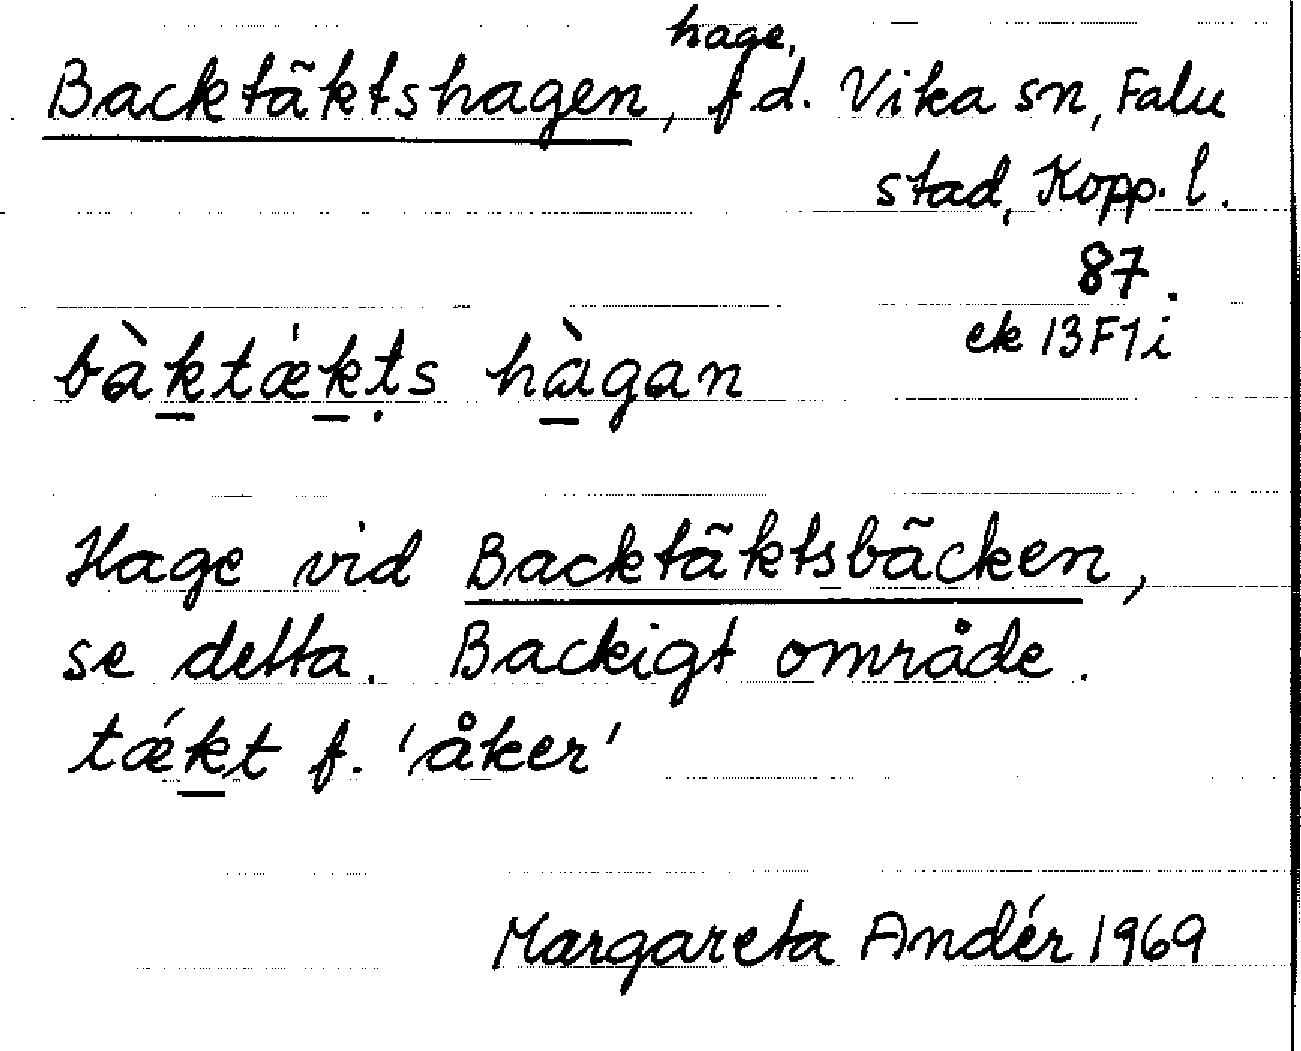 Backtäktshagen, hage, f d. Vika sn, Falu
stad, Kopp. l.
87.
ek 13F1i
bàktǽkṭs hàgan
Hage vid Backtäktsbäcken,
se detta. Backigt område.
tǽkt f. 'åker'
Margareta Andér 1969